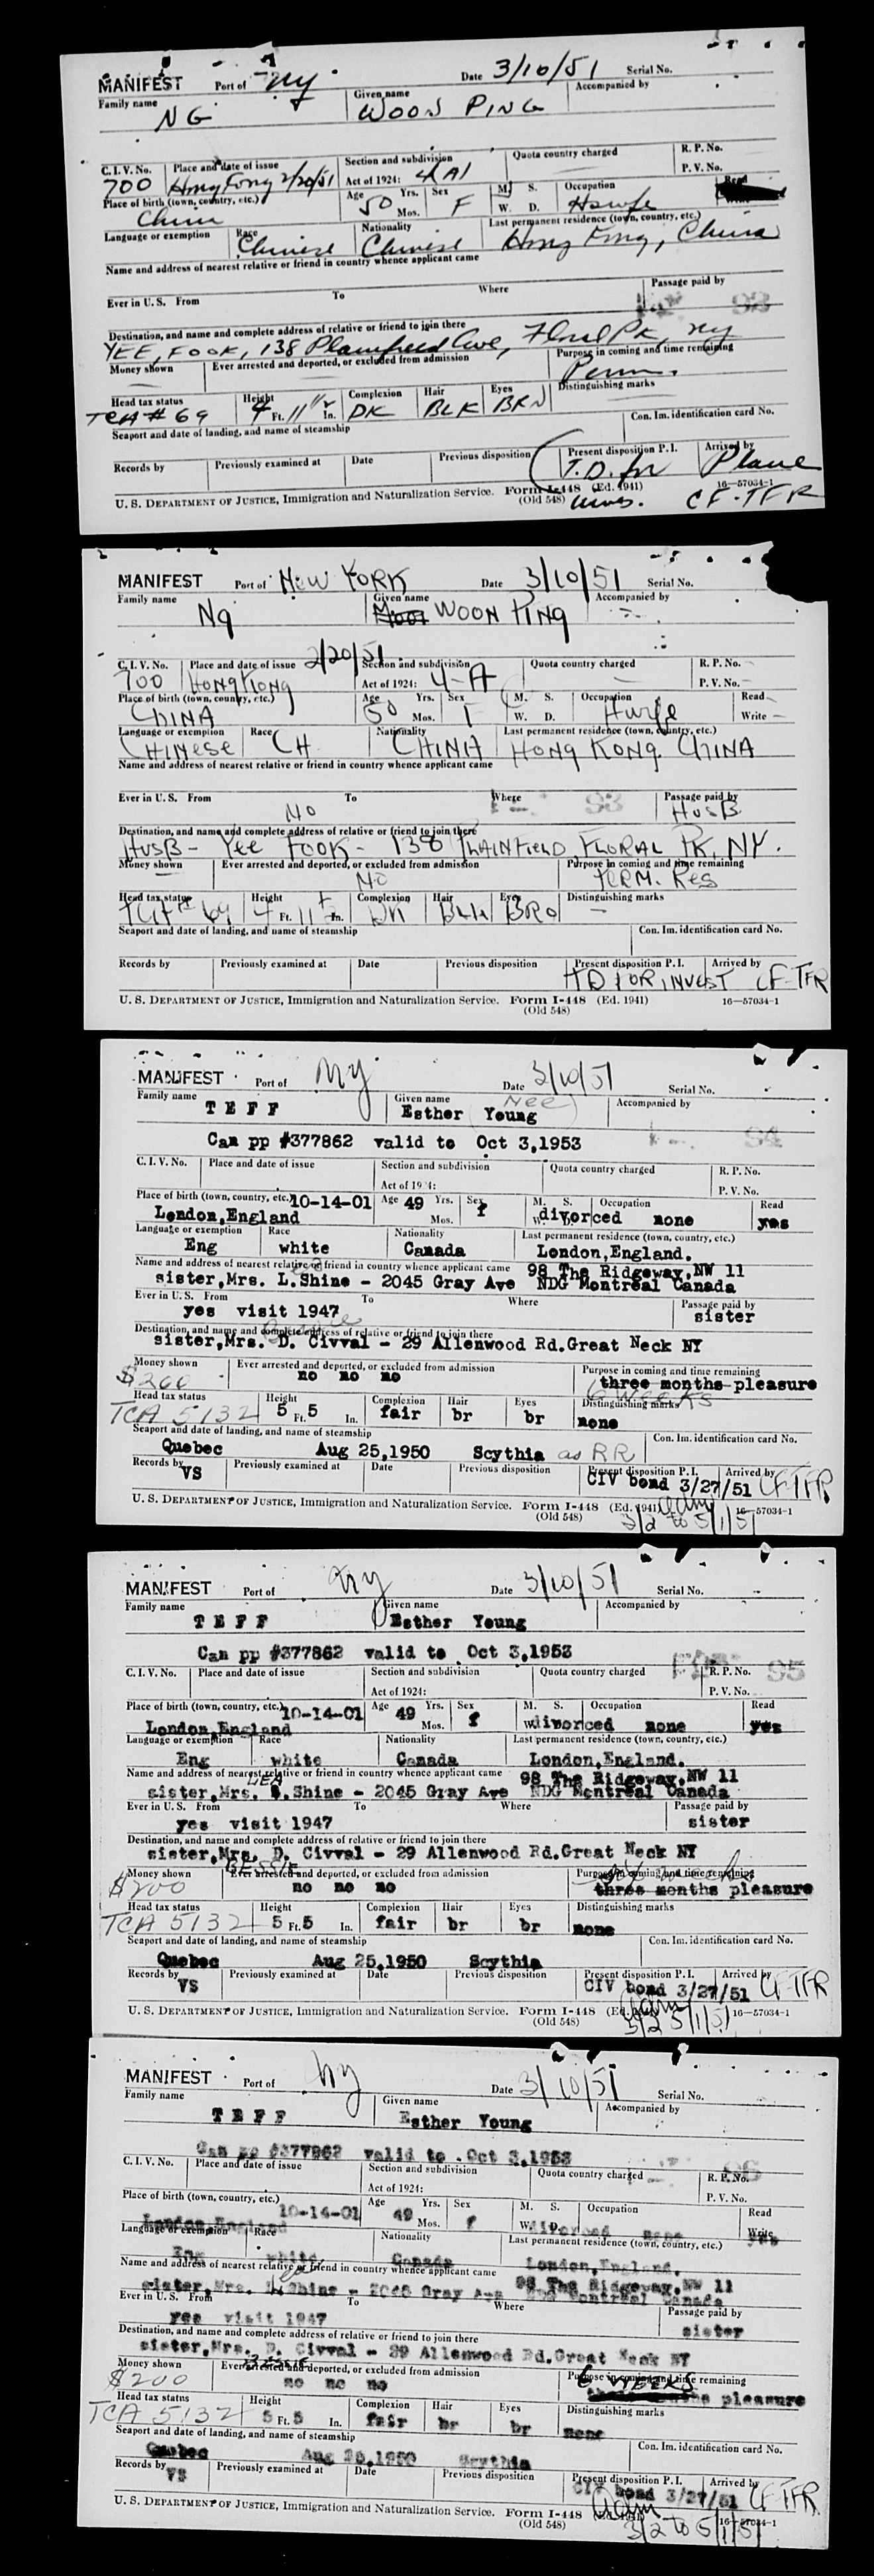 MANIFEST Port of NY Date 3/10/51 Serial No.
Family name NG Given name WOON PING Accompanied by
C. I. V. No. 700 Place and date of issue Hong Kong 2/20/51 Section and subdivision Act of 1924: 4A1 Quota country charged R. P. No. P. V. No.
Place of birth (town, country, etc.) China Age 50 Yrs. Mos. Sex F M. S. W. D. Occupation Hswfe Read
Language or exemption Race Chinese Nationality Chinese Last permanent residence (town, country, etc.) Hong Kong, China
Name and address of nearest relative or friend in country whence applicant came
Ever in U. S. From To Where Passage paid by
93
Destination, and name and complete address of relative or friend to join there
YEE, FOOK, 138 Plainfield Ave, Floral Pk, NY
Money shown Ever arrested and deported, or excluded from admission Purpose in coming and time remaining Perm.
Head tax status TCA # 69 Height 4 Ft. 11 1/2 In. Complexion DK Hair BLK Eyes BRN Distinguishing marks
Seaport and date of landing, and name of steamship Con. Im. identification card No.
Records by Previously examined at Date Previous disposition Present disposition P. I. T.D. for Arrived by Plane
U. S. DEPARTMENT OF JUSTICE, Immigration and Naturalization Service. Form I-448 (Ed. 1941) (Old 548) 16—57034-1 CF-TFR
MANIFEST Port of NEW YORK Date 3/10/51 Serial No.
Family name Ng Given name WOON PING Accompanied by
C. I. V. No. 700 Place and date of issue 2/20/51 HONG KONG Section and subdivision Act of 1924: 4-A Quota country charged R. P. No. P. V. No.
Place of birth (town, country, etc.) CHINA Age 50 Yrs. Mos. Sex M. S. W. D. Occupation Hwife Read Write
Language or exemption CHINESE Race CH Nationality CHINA Last permanent residence (town, country, etc.) HONG KONG CHINA
Name and address of nearest relative or friend in country whence applicant came
Ever in U. S. From NO To Where 93 Passage paid by HUSB
Destination, and name and complete address of relative or friend to join there
HUSB - Yee FOOK - 138 PLAINFIELD FLORAL PK, NY.
Money shown Ever arrested and deported, or excluded from admission NO Purpose in coming and time remaining PERM. RES
Head tax status TCA # 69 Height 4 Ft. 11 1/2 In. Complexion DK Hair BLK Eyes BRO Distinguishing marks —
Seaport and date of landing, and name of steamship Con. Im. identification card No.
Records by Previously examined at Date Previous disposition Present disposition P. I. TD FOR INVEST Arrived by CF-TFR
U. S. DEPARTMENT OF JUSTICE, Immigration and Naturalization Service. Form I-448 (Ed. 1941) (Old 548) 16—57034-1
MANIFEST Port of NY Date 3/10/51 Serial No.
Family name TEFF Given name Esther (Nee Young) Accompanied by
Can pp #377862 valid to Oct 3,1953 94
C. I. V. No. Place and date of issue Section and subdivision Act of 1924: Quota country charged R. P. No. P. V. No.
Place of birth (town, country, etc.) 10-14-01 London,England Age 49 Yrs. Mos. Sex f M. S. W. D. divorced Occupation none Read yes
Language or exemption Eng Race white Nationality Canada Last permanent residence (town, country, etc.) London,England.
Name and address of nearest relative or friend in country whence applicant came 98 The Ridgeway,NW 11
sister,Mrs. L.Shine - 2045 Gray Ave NDG Montreal Canada
Ever in U. S. From yes visit 1947 To Where Passage paid by sister
Destination, and name and complete address of relative or friend to join there
sister,Mrs. D. Civval - 29 Allenwood Rd.Great Neck NY
Money shown $200 Ever arrested and deported, or excluded from admission no no no Purpose in coming and time remaining three months pleasure 6 weeks
Head tax status TCA 5132 Height 5 Ft. 5 In. Complexion fair Hair br Eyes br Distinguishing marks none
Seaport and date of landing, and name of steamship Quebec Aug 25,1950 Scythia as RR Con. Im. identification card No.
Records by VS Previously examined at Date Previous disposition Present disposition P. I. CIV bond 3/27/51 Arrived by CF TFR
U. S. DEPARTMENT OF JUSTICE, Immigration and Naturalization Service. Form I-448 (Ed. 1941) (Old 548) 16—57034-1
3/2 to 5/1/51
MANIFEST Port of NY Date 3/10/51 Serial No.
Family name TEFF Given name Esther Young Accompanied by
Can pp #377862 valid to Oct 3,1953
C. I. V. No. Place and date of issue Section and subdivision Act of 1924: Quota country charged R. P. No. 95 P. V. No.
Place of birth (town, country, etc.) 10-14-01 London,England Age 49 Yrs. Mos. Sex f M. S. W. divorced Occupation none Read yes
Language or exemption Eng Race white Nationality Canada Last permanent residence (town, country, etc.) London,England.
Name and address of nearest relative or friend in country whence applicant came 98 The Ridgeway,NW 11
sister,Mrs. LEA Shine - 2045 Gray Ave NDG Montreal Canada
Ever in U. S. From yes visit 1947 To Where Passage paid by sister
Destination, and name and complete address of relative or friend to join there
sister,Mrs. D. Civval - 29 Allenwood Rd.Great Neck NY
BESSIE
Money shown $200 Ever arrested and deported, or excluded from admission no no no Purpose in coming and time remaining three months pleasure
Head tax status TCA 5132 Height 5 Ft. 5 In. Complexion fair Hair br Eyes br Distinguishing marks none
Seaport and date of landing, and name of steamship Quebec Aug 25,1950 Scythia Con. Im. identification card No.
Records by VS Previously examined at Date Previous disposition Present disposition P. I. CIV bond 3/27/51 Arrived by CF TFR
U. S. DEPARTMENT OF JUSTICE, Immigration and Naturalization Service. Form I-448 (Old 548) 16—57034-1
3/2 5/1/51
MANIFEST Port of NY Date 3/10/51 Serial No.
Family name TEFF Given name Esther Young Accompanied by
Can pp #377862 valid to Oct 3,1953
C. I. V. No. Place and date of issue Section and subdivision Act of 1924: Quota country charged R. P. No. P. V. No.
Place of birth (town, country, etc.) 10-14-01 London,England Age 49 Yrs. Mos. Sex f M. S. W. D. divorced Occupation none Read Write yes
Language or exemption Eng Race white Nationality Canada Last permanent residence (town, country, etc.) London,England.
Name and address of nearest relative or friend in country whence applicant came 98 The Ridgeway,NW 11
sister,Mrs. L.Shine - 2045 Gray Ave NDG Montreal Canada
Ever in U. S. From yes visit 1947 To Where Passage paid by sister
Destination, and name and complete address of relative or friend to join there
sister,Mrs. D. Civval - 29 Allenwood Rd.Great Neck NY
BESSIE
Money shown $200 Ever arrested and deported, or excluded from admission no no no Purpose in coming and time remaining 6 WEEKS pleasure
Head tax status TCA 5132 Height 5 Ft. 5 In. Complexion fair Hair br Eyes br Distinguishing marks none
Seaport and date of landing, and name of steamship Quebec Aug 25,1950 Scythia Con. Im. identification card No.
Records by VS Previously examined at Date Previous disposition Present disposition P. I. CIV bond 3/27/51 Arrived by CF TFR
U. S. DEPARTMENT OF JUSTICE, Immigration and Naturalization Service. Form I-448 (Old 548) 16—57034-1
3/2 to 5/1/51